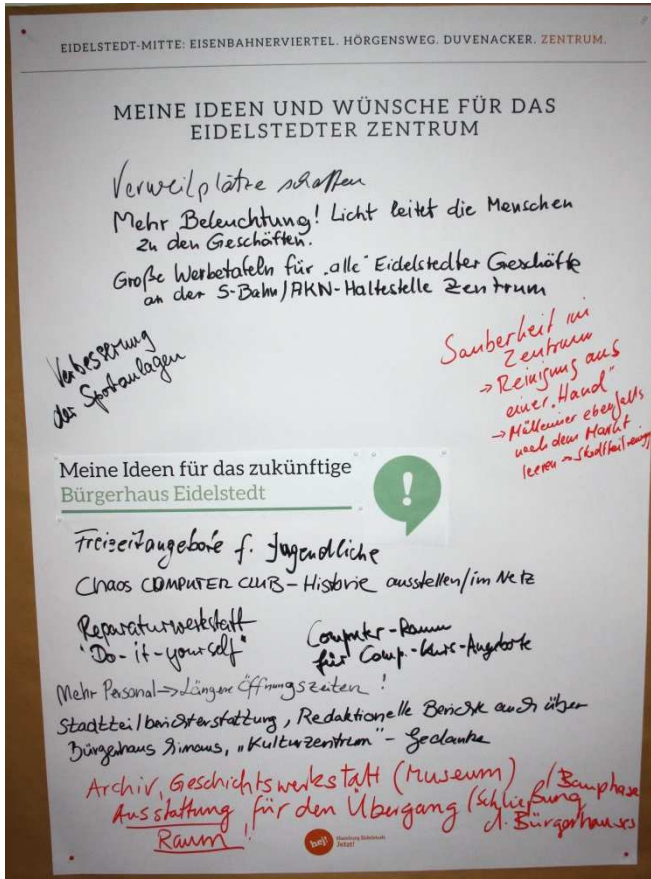 EIDELSTEDT-MITTE: EISENBAHNERVIERTEL. HÖRGENSWEG. DUVENACKER. ZENTRUM.
MEINE IDEEN UND WÜNSCHE FÜR DAS
EIDELSTEDTER ZENTRUM
Verweilplätze schaffen
Mehr Beleuchtung! Licht leitet die Menschen
zu den Geschäften.
Große Werbetafeln für "alle" Eidelstedter Geschäfte
an der S-Bahn/AKN-Haltestelle Zentrum
Verbesserung
der Sportanlagen
Sauberkeit im
Zentrum
→ Reinigung aus
einer "Hand"
→ Mülleimer ebenfalls
nach dem Markt
leeren →
Meine Ideen für das zukünftige
Bürgerhaus Eidelstedt
!
Freizeitangebote f. Jugendliche
Chaos COMPUTER CLUB – Historie ausstellen/im Netz
Reparaturwerkstatt
"Do-it-yourself"
Computer-Raum
für Comp.-Kurs-Angebote
Mehr Personal → Längere Öffnungszeiten!
Stadtteilberichterstattung, Redaktionelle Berichte auch über
Bürgerhaus hinaus, "Kulturzentrum" – Gedanke
Archiv, Geschichtswerkstatt (Museum)
Ausstattung für den Übergang (Schließung
/Bauphase
d. Bürgerhauses
Raum!
hej!
Hamburg Eidelstedt
Jetzt!